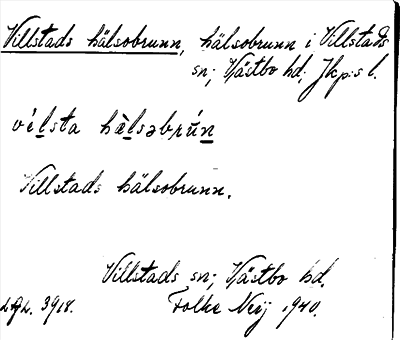 Villstads hälsobrunn, hälsobrunn i Villstads
sn; Västbo hd; Jkp:s l.
vílsta hàlsəbrún
Villstads hälsobrunn.
Villstads sn; Västbo hd.
3918. Folke Neij 1940.